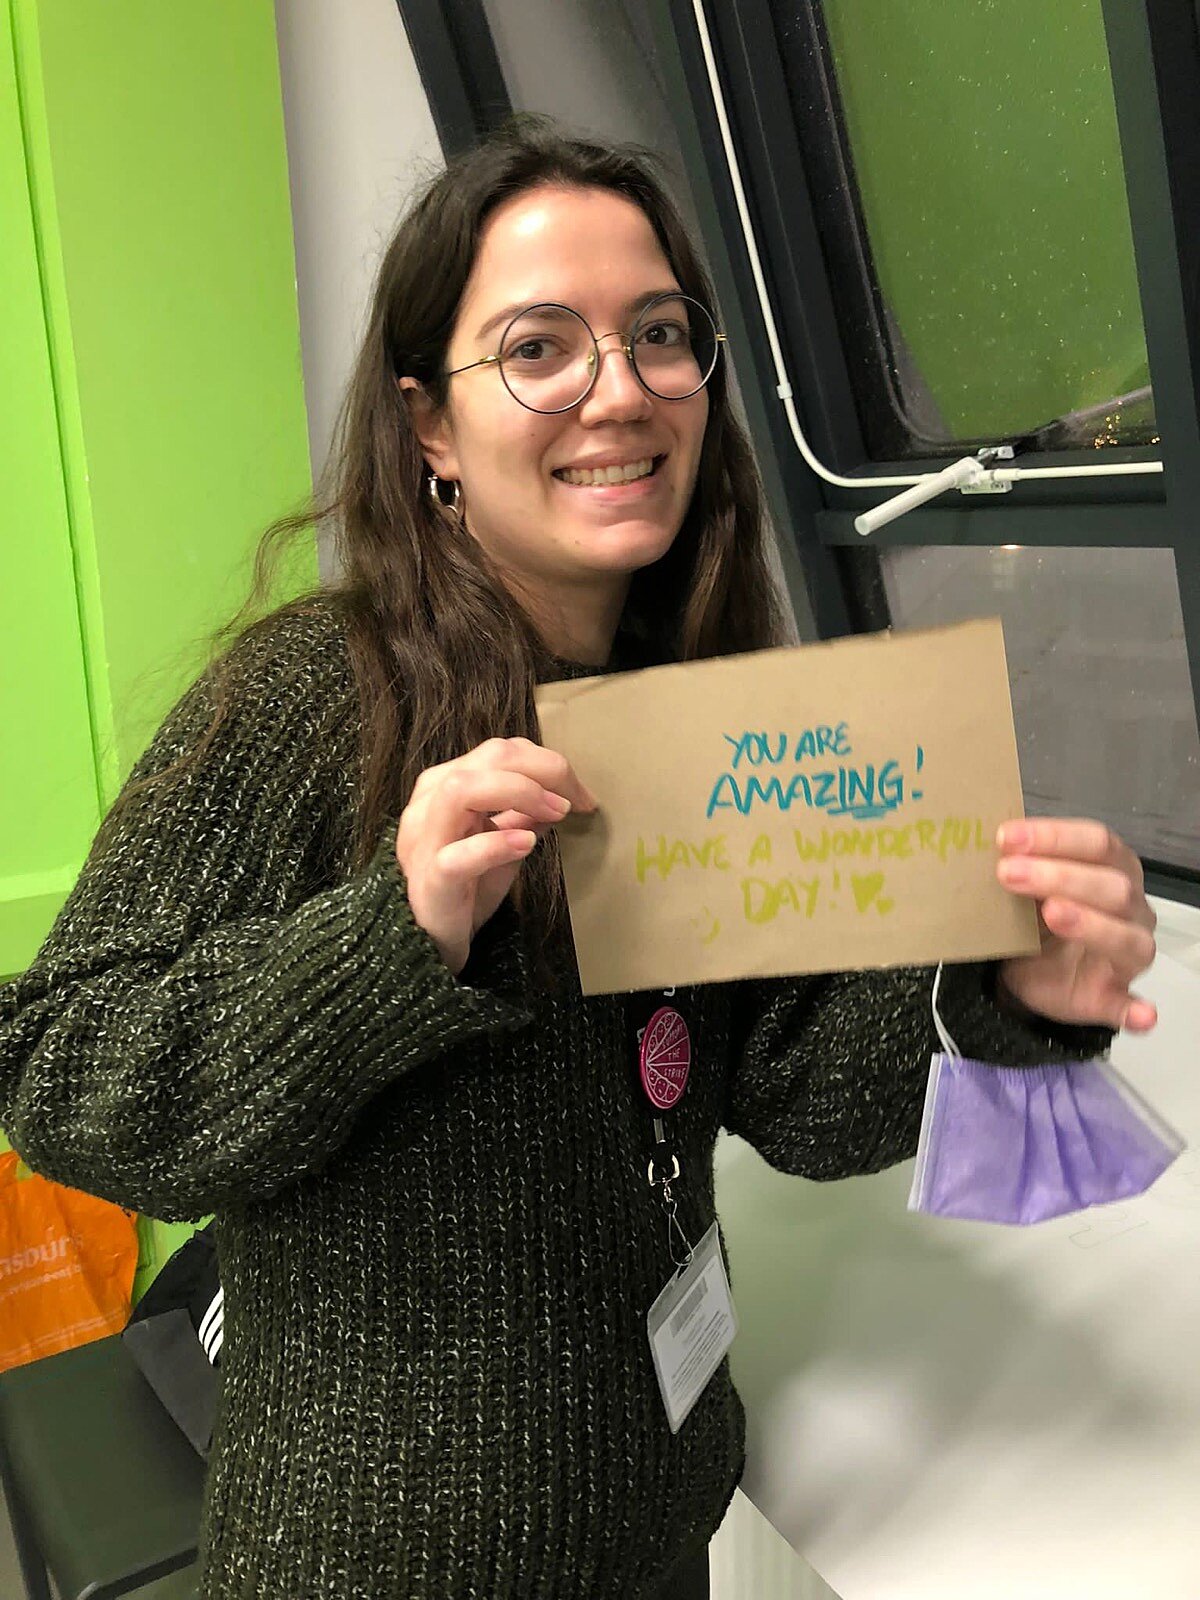 YOU ARE
AMAZING!
HAVE A WONDERFUL
DAY!
SUPPORT
THE
STRIKE